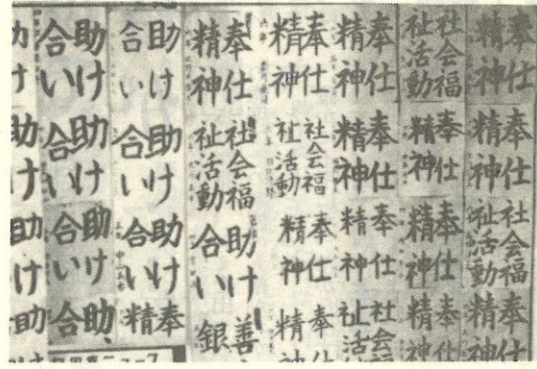 奉仕
精神
奉仕
精神
社会福
祉活動
奉仕
精神
社会福
祉活動
奉仕
精神
奉仕
精神
奉仕
精神
奉仕
精神
奉仕
精神
奉仕
精神
社会
祉活
奉仕
精神
社会福
祉活動
奉仕
精神
奉仕
精
奉仕
精神
社会福
祉活動
助け
合い
善
銀
助け
合い
助け
合い
助け
合い
奉
精
助け
合い
助け
合い
助け
合い
助
合
助け
助け
助け
助